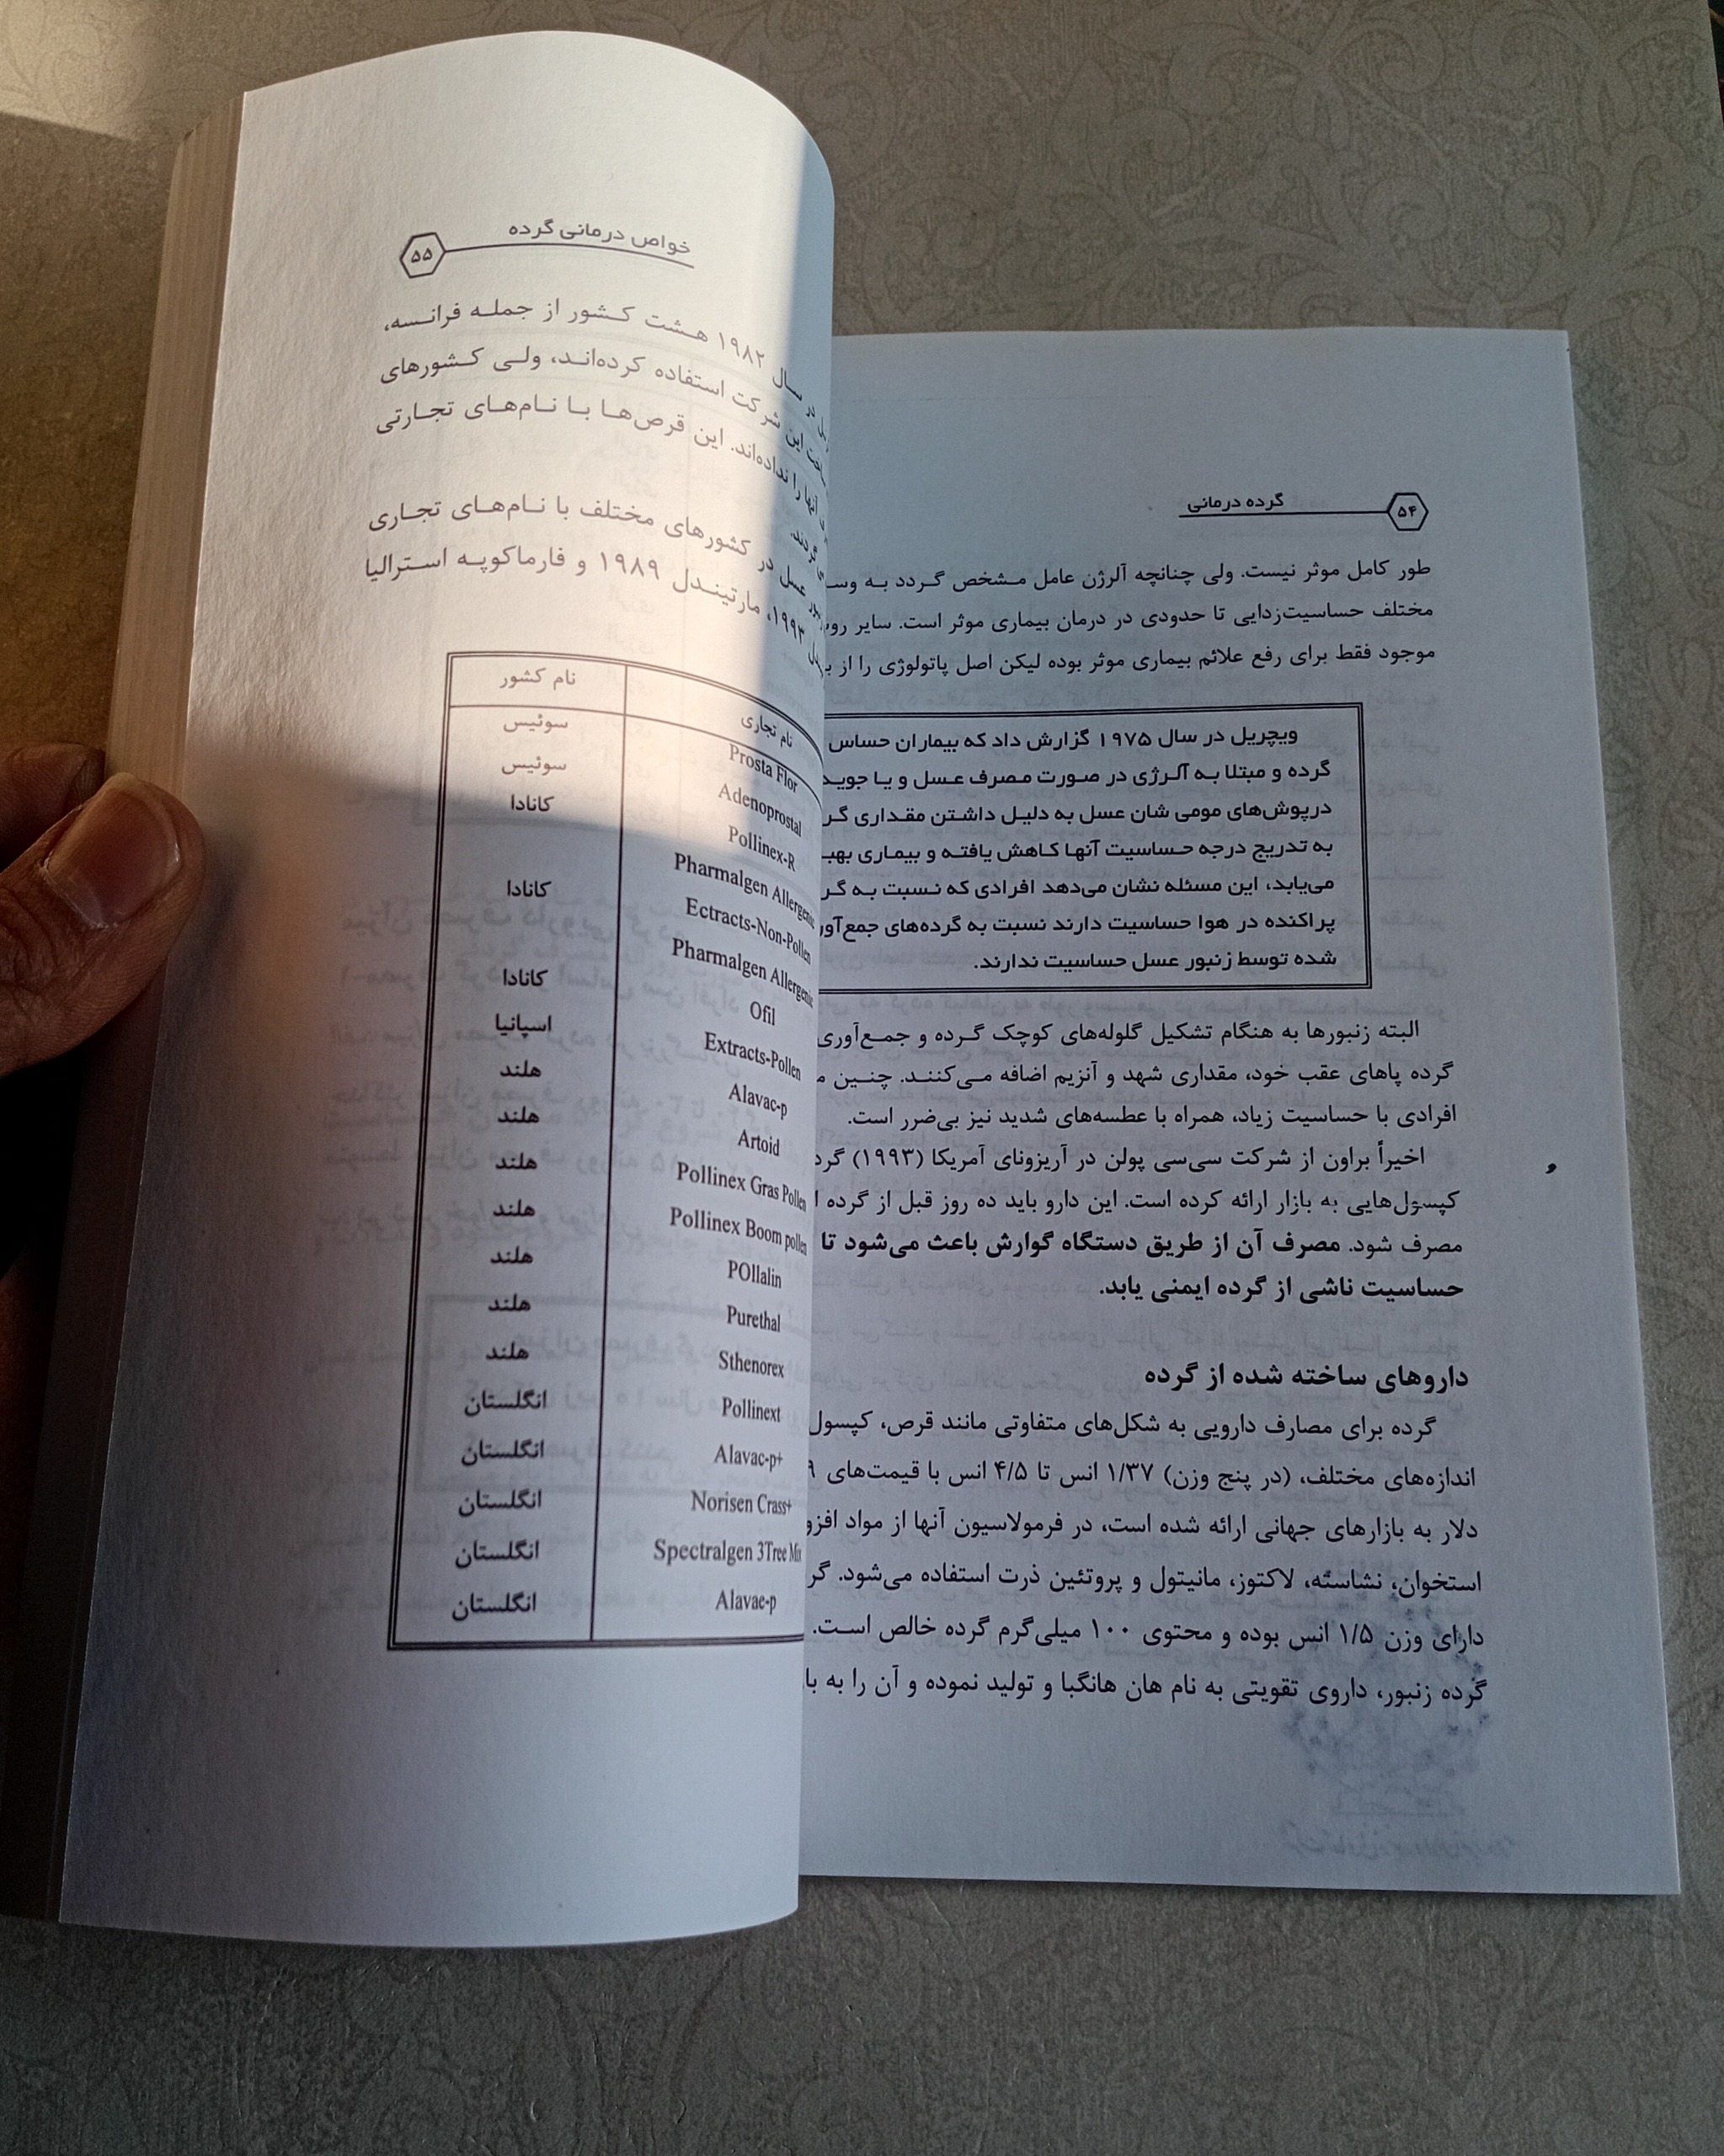 ۵۴
گرده درمانی
طور کامل موثر نیست. ولی چنانچه آلرژن عامل مشخص گردد به
مختلف حساسیت‌زدایی تا حدودی در درمان بیماری موثر است. سایر
موجود فقط برای رفع علائم بیماری موثر بوده لیکن اصل پاتولوژی را از
ویچریل در سال ۱۹۷۵ گزارش داد که بیماران حساس
گرده و مبتلا به آلرژی در صورت مصرف عسل و یا
درپوش‌های مومی شان عسل به دلیل داشتن مقداری
به تدریج درجه حساسیت آنها کاهش یافته و بیماری
می‌یابد، این مسئله نشان می‌دهد افرادی که نسبت به
پراکنده در هوا حساسیت دارند نسبت به گرده‌های
شده توسط زنبور عسل حساسیت ندارند.
البته زنبورها به هنگام تشکیل گلوله‌های کوچک گرده و جمع‌آوری
گرده پاهای عقب خود، مقداری شهد و آنزیم اضافه می‌کنند. چنین
افرادی با حساسیت زیاد، همراه با عطسه‌های شدید نیز بی‌ضرر است.
اخیراً براون از شرکت سی‌سی پولن در آریزونای آمریکا (۱۹۹۳)
کپسول‌هایی به بازار ارائه کرده است. این دارو باید ده روز قبل از گرده
مصرف شود. مصرف آن از طریق دستگاه گوارش باعث می‌شود تا
حساسیت ناشی از گرده ایمنی یابد.
داروهای ساخته شده از گرده
گرده برای مصارف دارویی به شکل‌های متفاوتی مانند قرص، کپسول
اندازه‌های مختلف، (در پنج وزن) ۱/۳۷ انس تا ۴/۵ انس با قیمت‌های
دلار به بازارهای جهانی ارائه شده است، در فرمولاسیون آنها از مواد
استخوان، نشاسته، لاکتوز، مانیتول و پروتئین ذرت استفاده می‌شود.
دارای وزن ۱/۵ انس بوده و محتوی ۱۰۰ میلی‌گرم گرده خالص است.
گرده زنبور، داروی تقویتی به نام هان هانگبا و تولید نموده و آن را به
خواص درمانی گرده
۵۵
در سال ۱۹۸۲ هشت کشور از جمله فرانسه،
این شرکت استفاده کرده‌اند، ولی کشورهای
آنها را نداده‌اند. این قرص‌ها با نام‌های تجارتی
گردند.
عسل در کشورهای مختلف با نام‌های تجاری
۱۹۹۳، مارتیندل ۱۹۸۹ و فارماکوپه استرالیا
نام تجاری نام کشور
Prosta Flor سوئیس
Adenoprostal سوئیس
Pollinex-R کانادا
Pharmalgen Allergenic
Ectracts-Non-Pollen کانادا
Pharmalgen Allergenic
Ofil کانادا
Extracts-Pollen اسپانیا
Alavac-p هلند
Artoid هلند
Pollinex Gras Pollen هلند
Pollinex Boom pollen هلند
POllalin هلند
Purethal هلند
Sthenorex هلند
Pollinext انگلستان
Alavac-p+ انگلستان
Norisen Crass+ انگلستان
Spectralgen 3Tree Mix انگلستان
Alavae-p انگلستان